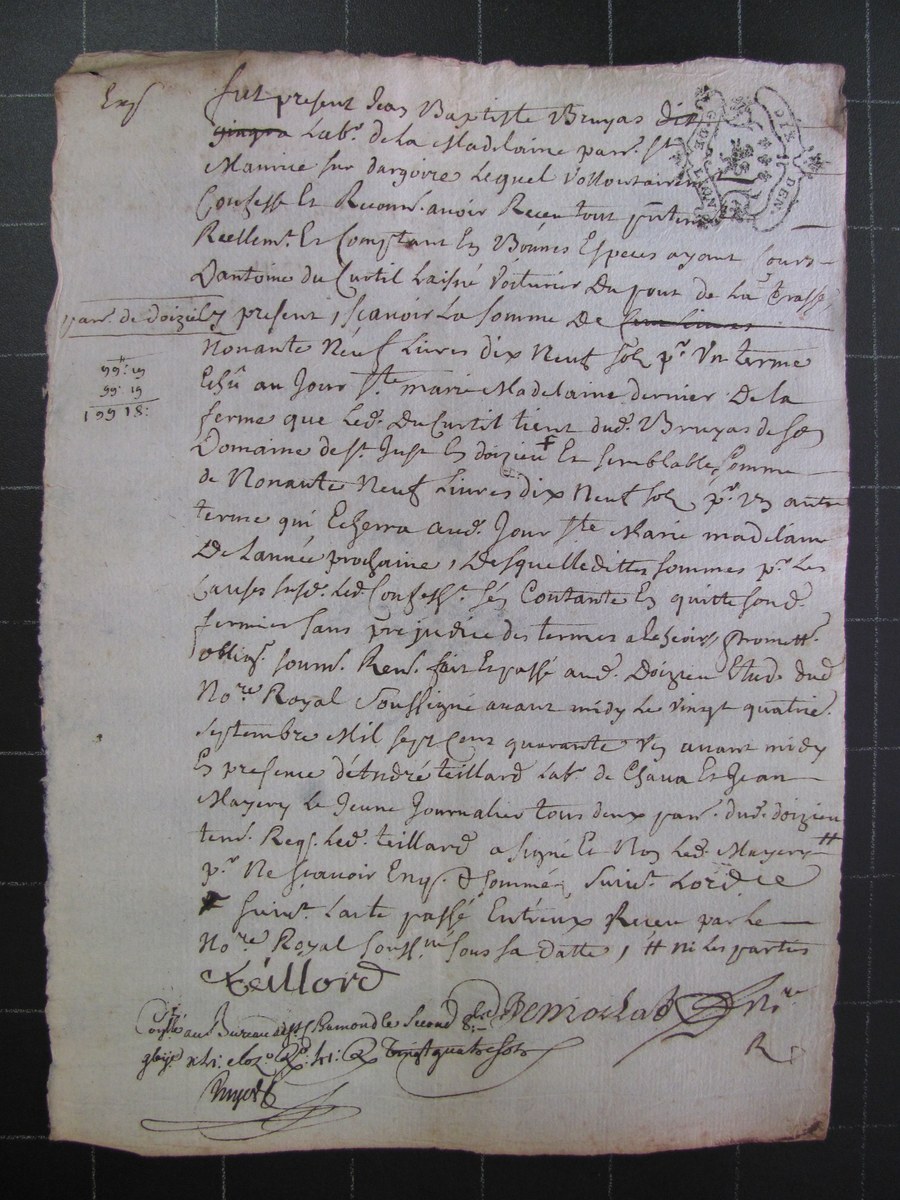 Exp.
fut present Jean Baptiste Bruyas dit
gingra Labr. de la Madelaine parr. st
Maurice sur dargoire Lequel vollontairem.
Confesse Et Reconn. avoir Receu tout
Reellemt. Et Comptant En Bonnes Especes ayant Cours
D'antoine du Curtil Laisné Voiturier Du pont de La Trasse
parr. de doizieu present, sçavoir La somme De
Nonante Neuf Livres dix Neuf sols pr. Vn terme
99: 19
99: 19
199 18:
Echû au Jour Ste. marie Madelaine dernier De la
ferme que Led. Du Curtil tient dud. Bruyas de son
Domaine de st. Just En doizieu Et semblable somme
de Nonante Neuf Livres dix Neuf sols pr. Vn autre
terme qui Echerra aud. Jour Ste Marie madelaine
De L'année prochaine, Desquelledittes sommes pr. Les
Causes susd. Led. Confesst. s'en Contante En quitte sond.
fermier sans prejudice des termes a Escheoir, promett.
obligt. soum. Ren. fait Et passé aud. Doizieu Etud. dud.
Nore. Royal Soussigné avant midy Le vingt quatrie.
Septembre Mil sept Cent quarante Vn avant midy
En presence d'André teillard Labr. de Chava Et Jean
Mayery Le Jeune Journalier tous deux parr. dud. doizieu
tem. Req. Led. teillard a signé Et Non Led. Mayery #
pr. Ne sçavoir Enq. & sommé, suivt. Lord.ce
suivt. Lacte passé Entreux Receu par Le
Nore. Royal Souss.né sous sa datte, # ni Les partes
Teillard
Nre.
au Bureau de st. Chamond Le Second 8bre.
vingt quatre sols
R
SIX DEN.
G. DE LYON